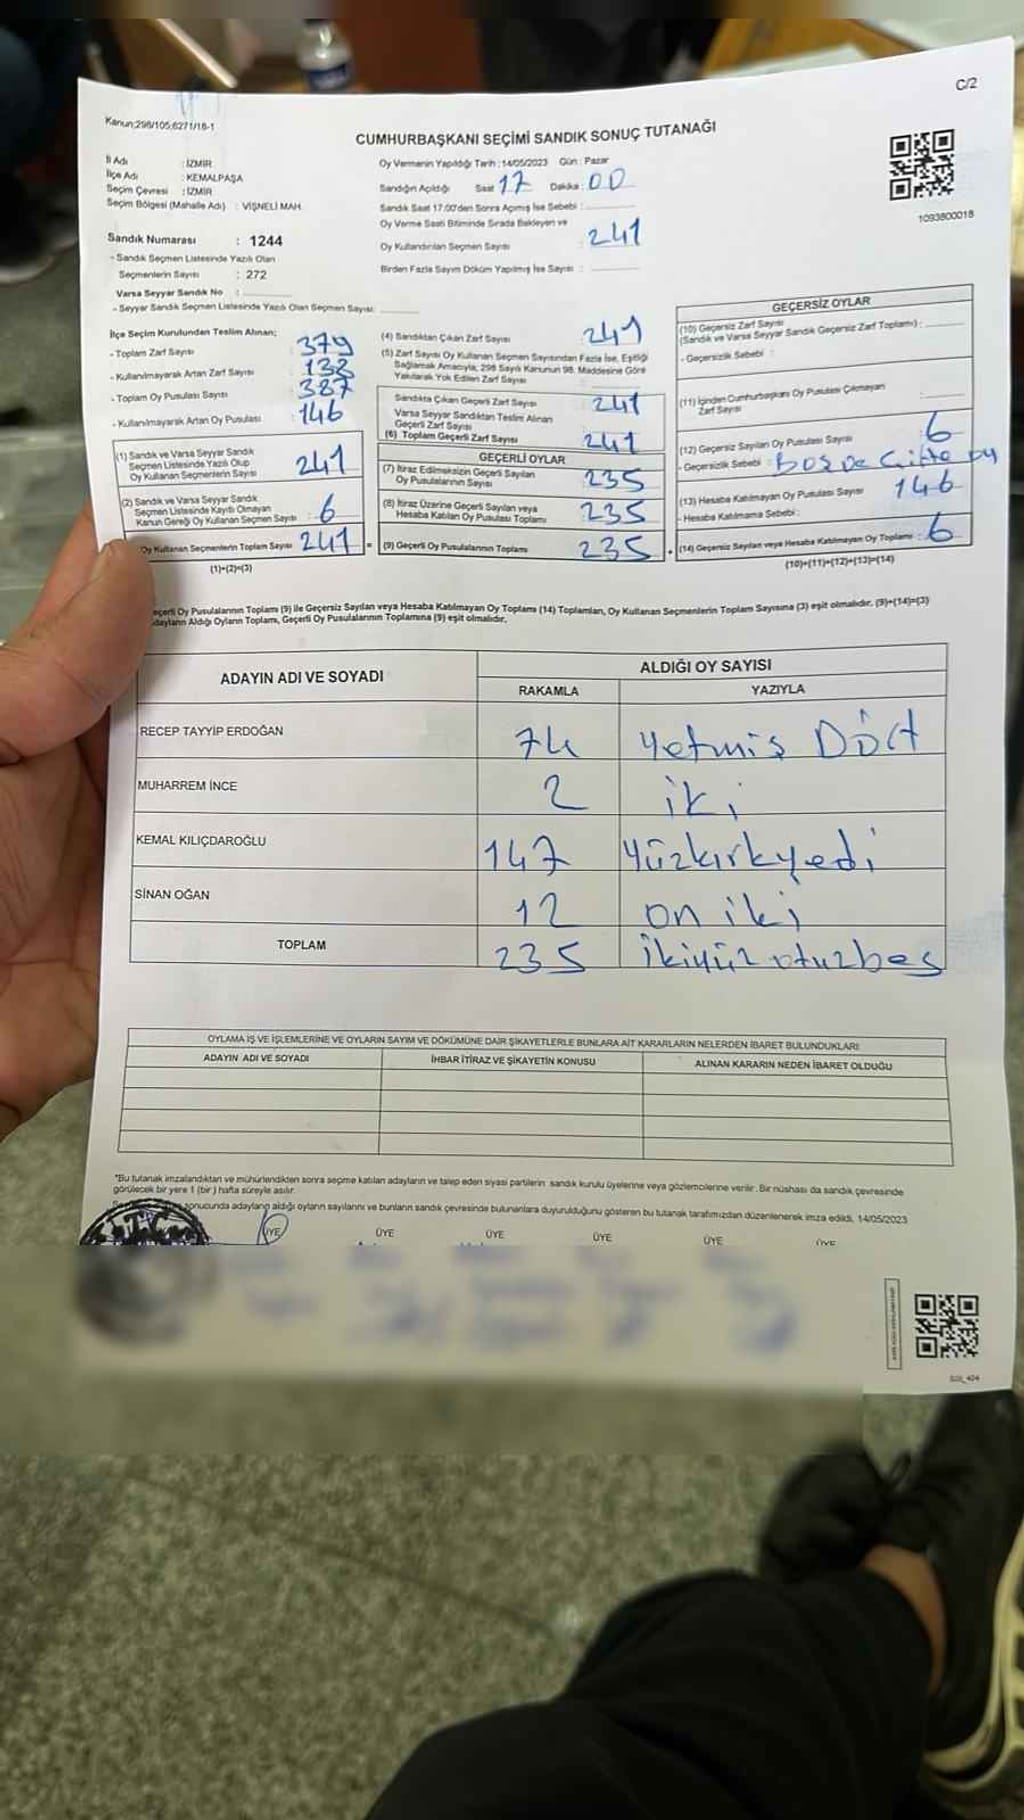 C/2
Kanun;298/105;6271/18-1
CUMHURBAŞKANI SEÇİMİ SANDIK SONUÇ TUTANAĞI
İl Adı : İZMİR
İlçe Adı : KEMALPAŞA
Seçim Çevresi : İZMİR
Seçim Bölgesi (Mahalle Adı) : VİŞNELİ MAH.
Oy Vermenin Yapıldığı Tarih : 14/05/2023 Gün : Pazar
Sandığın Açıldığı Saat 17 Dakika : 00
Sandık Saat 17.00'den Sonra Açılmış İse Sebebi :
Oy Verme Saati Bitiminde Sırada Bekleyen ve
Oy Kullandırılan Seçmen Sayısı : 241
Birden Fazla Sayım Döküm Yapılmış İse Sayısı :
1093800018
Sandık Numarası : 1244
- Sandık Seçmen Listesinde Yazılı Olan
Seçmenlerin Sayısı : 272
Varsa Seyyar Sandık No :
- Seyyar Sandık Seçmen Listesinde Yazılı Olan Seçmen Sayısı:
İlçe Seçim Kurulundan Teslim Alınan;
- Toplam Zarf Sayısı : 379
- Kullanılmayarak Artan Zarf Sayısı : 138
- Toplam Oy Pusulası Sayısı : 387
- Kullanılmayarak Artan Oy Pusulası : 146
(1) Sandık ve Varsa Seyyar Sandık
Seçmen Listesinde Yazılı Olup
Oy Kullanan Seçmenlerin Sayısı : 241
(2) Sandık ve Varsa Seyyar Sandık
Seçmen Listesinde Kayıtlı Olmayan
Kanun Gereği Oy Kullanan Seçmen Sayısı : 6
Oy Kullanan Seçmenlerin Toplam Sayısı : 241
(1)+(2)=(3)
(4) Sandıktan Çıkan Zarf Sayısı : 241
(5) Zarf Sayısı Oy Kullanan Seçmen Sayısından Fazla İse, Eşitliği
Sağlamak Amacıyla; 298 Sayılı Kanunun 98. Maddesine Göre
Yakılarak Yok Edilen Zarf Sayısı :
Sandıkta Çıkan Geçerli Zarf Sayısı : 241
Varsa Seyyar Sandıktan Teslim Alınan
Geçerli Zarf Sayısı :
(6) Toplam Geçerli Zarf Sayısı : 241
GEÇERLİ OYLAR
(7) İtiraz Edilmeksizin Geçerli Sayılan
Oy Pusulalarının Sayısı : 235
(8) İtiraz Üzerine Geçerli Sayılan veya
Hesaba Katılan Oy Pusulası Toplamı : 235
= (9) Geçerli Oy Pusulalarının Toplamı : 235
GEÇERSİZ OYLAR
(10) Geçersiz Zarf Sayısı
(Sandık ve Varsa Seyyar Sandık Geçersiz Zarf Toplamı) :
- Geçersizlik Sebebi :
(11) İçinden Cumhurbaşkanı Oy Pusulası Çıkmayan
Zarf Sayısı :
(12) Geçersiz Sayılan Oy Pusulası Sayısı : 6
- Geçersizlik Sebebi : Boş ve Çifte oy
(13) Hesaba Katılmayan Oy Pusulası Sayısı : 146
- Hesaba Katılmama Sebebi :
+ (14) Geçersiz Sayılan veya Hesaba Katılmayan Oy Toplamı : 6
(10)+(11)+(12)+(13)=(14)
eçerli Oy Pusulalarının Toplamı (9) ile Geçersiz Sayılan veya Hesaba Katılmayan Oy Toplamı (14) Toplamları, Oy Kullanan Seçmenlerin Toplam Sayısına (3) eşit olmalıdır. (9)+(14)=(3)
dayların Aldığı Oyların Toplamı, Geçerli Oy Pusulalarının Toplamına (9) eşit olmalıdır.
ADAYIN ADI VE SOYADI
ALDIĞI OY SAYISI
RAKAMLA YAZIYLA
RECEP TAYYİP ERDOĞAN 74 Yetmiş Dört
MUHARREM İNCE 2 iki
KEMAL KILIÇDAROĞLU 147 Yüzkırkyedi
SİNAN OĞAN 12 on iki
TOPLAM 235 ikiyüz otuzbeş
OYLAMA İŞ VE İŞLEMLERİNE VE OYLARIN SAYIM VE DÖKÜMÜNE DAİR ŞİKAYETLERLE BUNLARA AİT KARARLARIN NELERDEN İBARET BULUNDUKLARI
ADAYIN ADI VE SOYADI İHBAR İTİRAZ VE ŞİKAYETİN KONUSU ALINAN KARARIN NEDEN İBARET OLDUĞU
*Bu tutanak imzalandıktan ve mühürlendikten sonra seçime katılan adayların ve talep eden siyasi partilerin sandık kurulu üyelerine veya gözlemcilerine verilir. Bir nüshası da sandık çevresinde
görülecek bir yere 1 (bir ) hafta süreyle asılır.
sonucunda adayların aldığı oyların sayılarını ve bunların sandık çevresinde bulunanlara duyurulduğunu gösteren bu tutanak tarafımızdan düzenlenerek imza edildi. 14/05/2023
ÜYE ÜYE ÜYE ÜYE ÜYE ÜYE